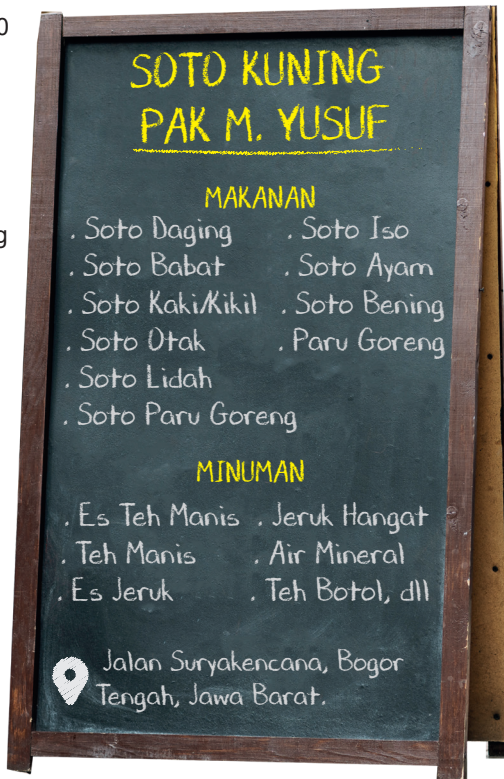 0
g
SOTO KUNING
PAK M. YUSUF
MAKANAN
. Soto Daging
. Soto Babat
. Soto Kaki/Kikil
. Soto Otak
. Soto Lidah
. Soto Paru Goreng
. Soto Iso
. Soto Ayam
. Soto Bening
. Paru Goreng
MINUMAN
. Es Teh Manis
. Teh Manis
. Es Jeruk
. Jeruk Hangat
. Air Mineral
. Teh Botol, dll
Jalan Suryakencana, Bogor
Tengah, Jawa Barat.